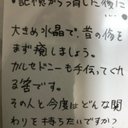 記憶から消した後に
大きめ水晶で、昔の傷を
まず癒しましょう。
カルセドニーも手伝ってくれ
る筈です。
その人と今度はどんな関
わりを持ちたいですか?